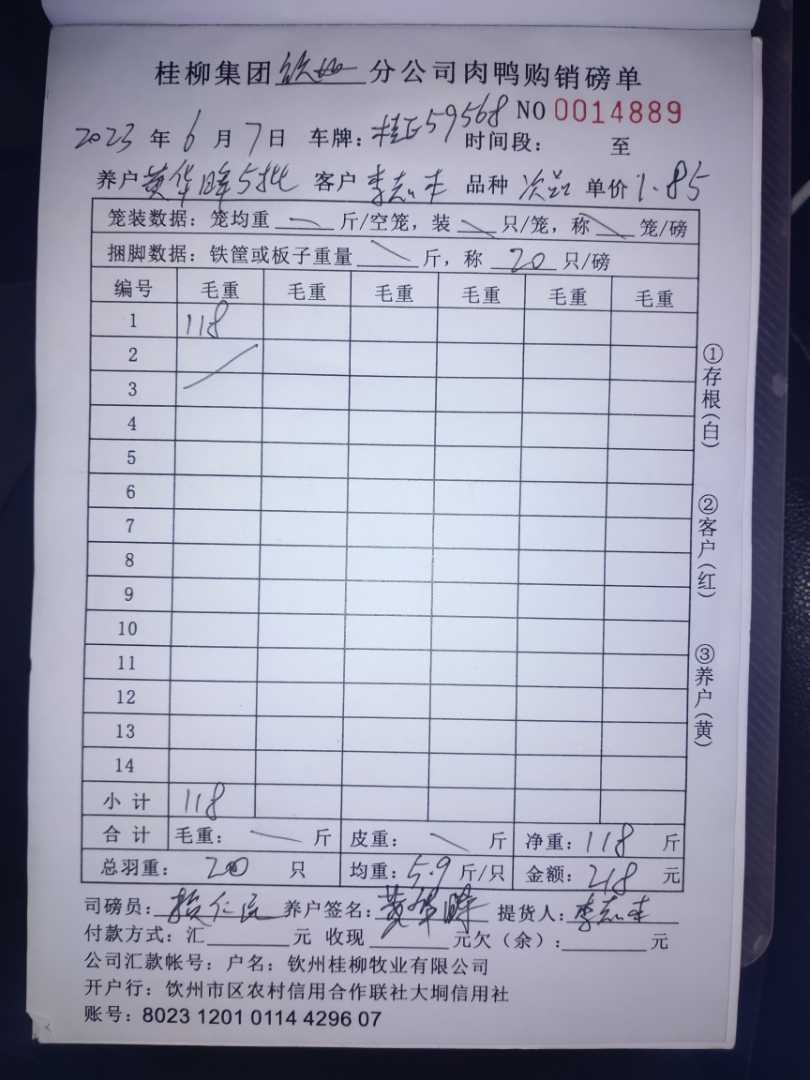 桂柳集团钦州分公司肉鸭购销磅单
NO 0014889
2023年6月7日 车牌:桂E59568 时间段: 至
养户黄华晖5批 客户李志丰 品种次品 单价1.85
笼装数据:笼均重 斤/空笼,装 只/笼,称 笼/磅
捆脚数据:铁筐或板子重量 斤,称20只/磅
编号 毛重 毛重 毛重 毛重 毛重 毛重
1 118
2
3
4
5
6
7
8
9
10
11
12
13
14
小计 118
合计 毛重: 斤 皮重: 斤 净重:118斤
总羽重: 20 只 均重:5.9斤/只 金额:218元
司磅员: 养户签名:黄华晖 提货人:李志丰
付款方式:汇 元 收现 元欠(余): 元
公司汇款帐号:户名:钦州桂柳牧业有限公司
开户行:钦州市区农村信用合作联社大垌信用社
账号:8023 1201 0114 4296 07
①存根(白)
②客户(红)
③养户(黄)